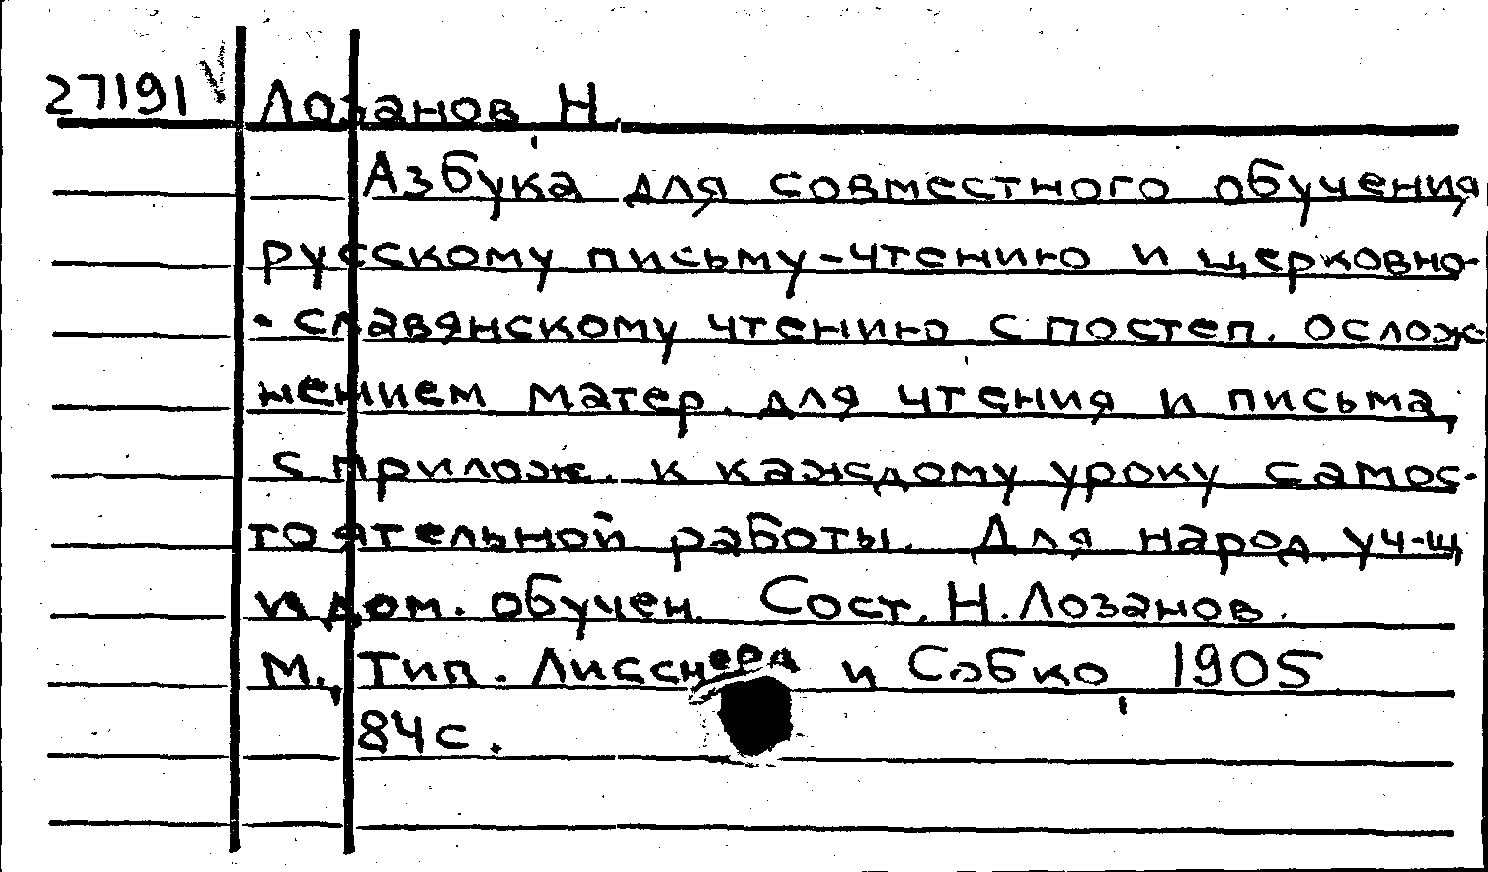 27191 Лозанов, Н.
Азбука для совместного обучения
русскому письму-чтению и церковно-
-славянскому чтению с постеп. ослож-
нением матер. для чтения и письма,
с прилож. к каждому уроку самос-
тоятельной работы. Для народ. уч-щ
и дом. обучен. Сост. Н. Лозанов.
М., Тип. Лисснера и Собко, 1905
84 с.